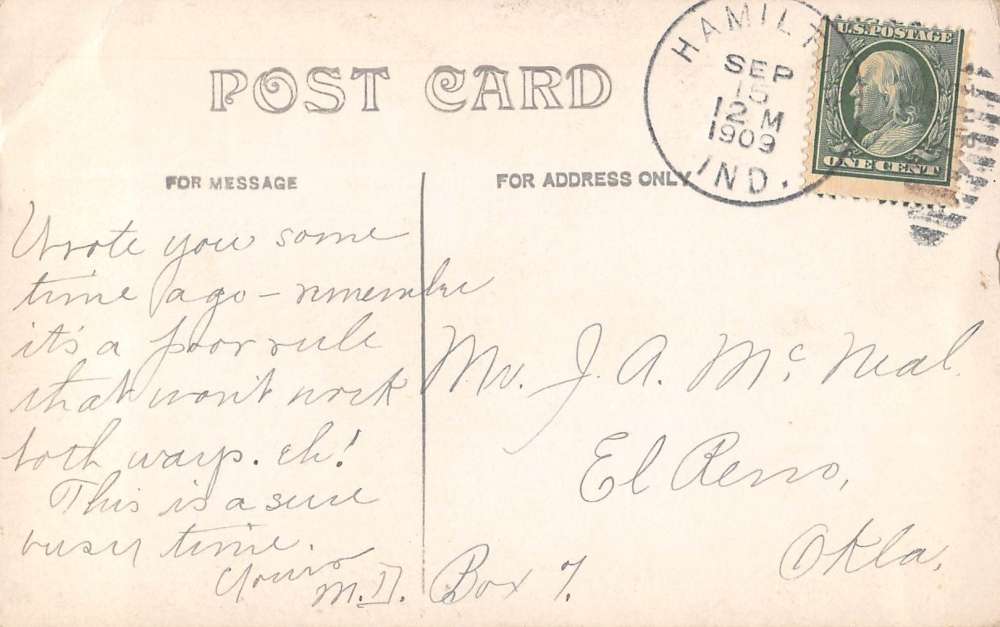 POST CARD
FOR MESSAGE
FOR ADDRESS ONLY
HAMILT
SEP
15
12 M
1909
IND.
U.S. POSTAGE
ONE CENT
Wrote you some
time ago - remember
it's a poor rule
that won't work
both ways. eh!
This is a sure
busy time.
Yours
M.D.
Mr. J. A. McNeal.
El Reno,
Okla.
Box 7.